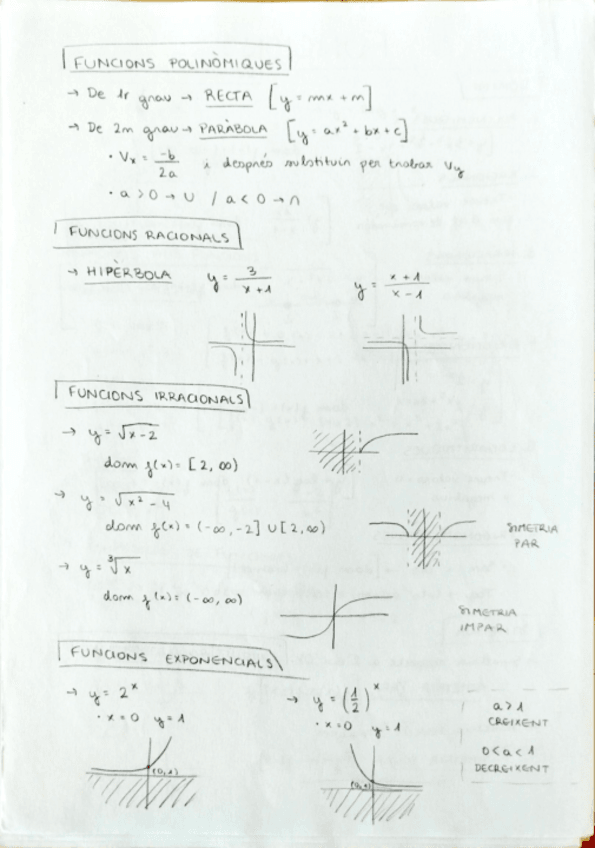 FUNCIONS POLINÒMIQUES
→ De 1r grau → RECTA [y = mx + m]
→ De 2m grau → PARÀBOLA [y = ax² + bx + c]
· Vx = -b/2a i després substituir per trobar Vy
· a > 0 → ∪ / a < 0 → ∩
FUNCIONS RACIONALS
→ HIPÈRBOLA y = 3/(x+1) y = (x+1)/(x-1)
FUNCIONS IRRACIONALS
→ y = √(x-2)
dom f(x) = [2, ∞)
→ y = √(x² - 4)
dom f(x) = (-∞, -2] ∪ [2, ∞)
SIMETRIA
PAR
→ y = ³√x
dom f(x) = (-∞, ∞)
SIMETRIA
IMPAR
FUNCIONS EXPONENCIALS
→ y = 2ˣ → y = (1/2)ˣ
· x = 0 y = 1 · x = 0 y = 1
a > 1
CREIXENT
0 < a < 1
DECREIXENT